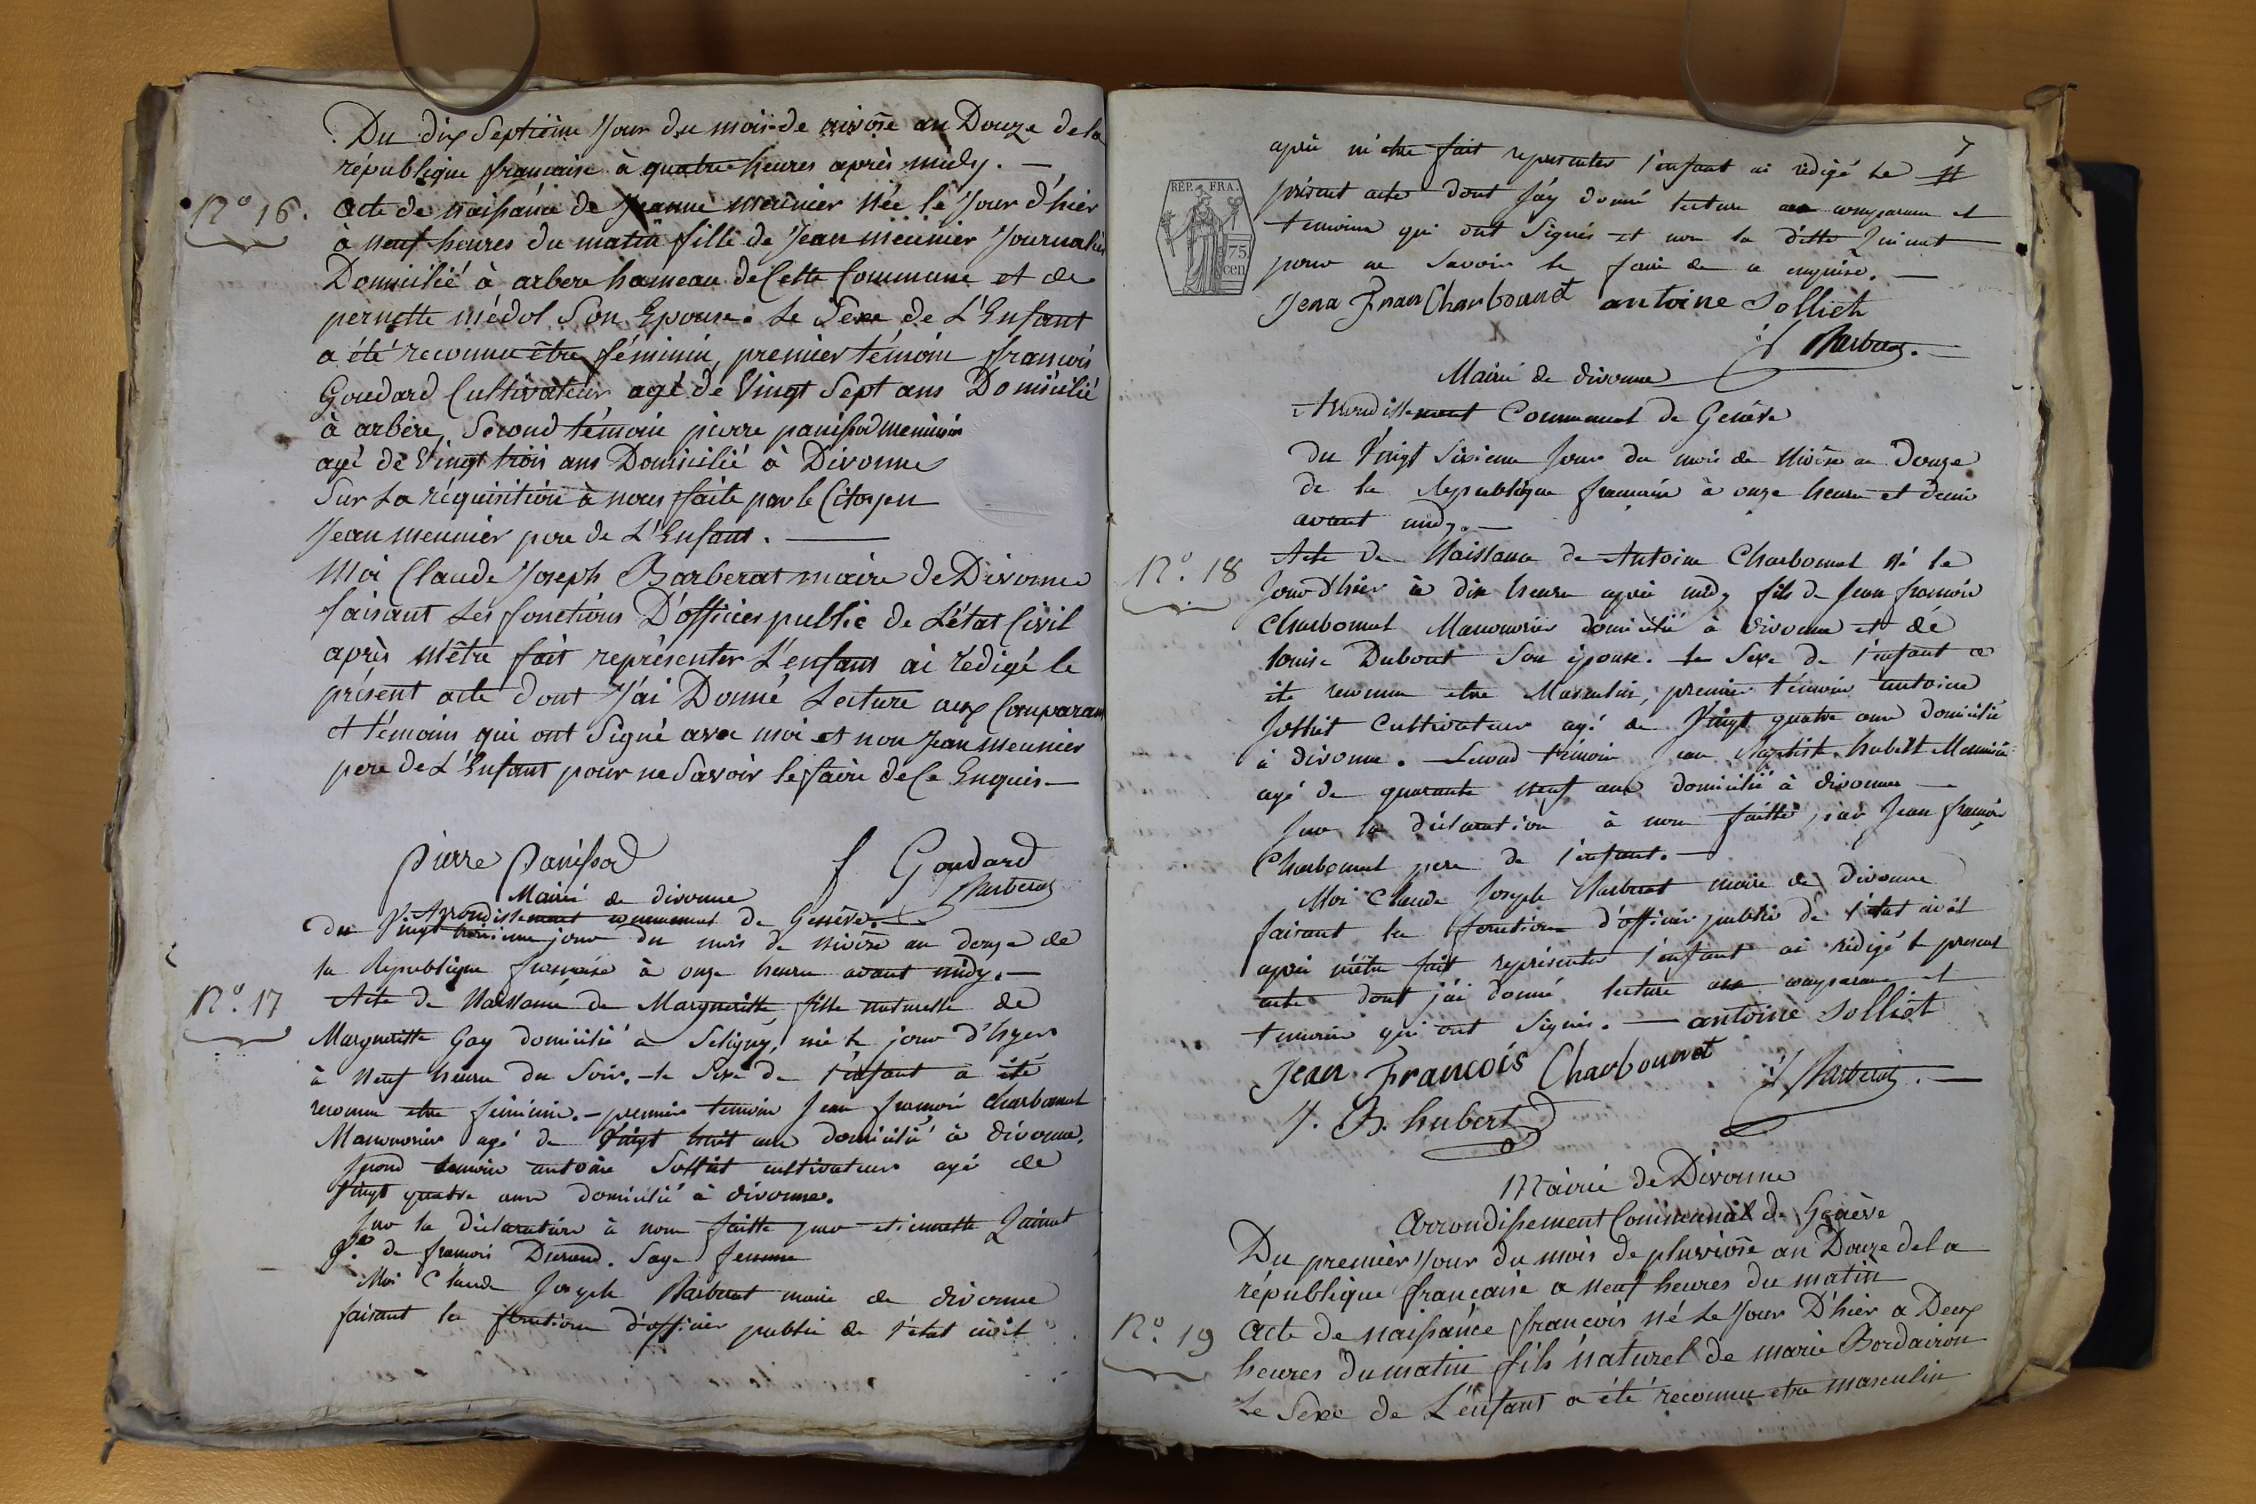 Du dix Septième Jour du mois de nivôse an Douze de la
république française à quatre heures après midy. —
N.º 16. Acte de naissance de Jeanne meunier Née le Jour d'hier
à neuf heures du matin fille de Jean meunier Journalier
Domicilié à arbere hameau de Cette Commune et de
pernette médol Son Epouse. Le Sexe de L'Enfant
a été reconnu être féminin, premier témoin francois
Goudard Cultivateur agé de Vingt Sept ans Domicilié
à arbère, Second témoin pierre panissod menuisier
agé de Vingt trois ans Domicilié à Divonne
Sur La réquisition à nous faite par le Citoyen
Jean meunier pere de L'Enfant. —
Moi Claude Joseph Barberat maire de Divonne
faisant Les fonctions D'officier public de L'état Civil
après m'être fait représenter L'enfant ai rédigé le
présent acte dont J'ai Donné Lecture aux Comparant
et témoins qui ont Signé avec moi et non Jean meunier
pere de L'Enfant pour ne Savoir le faire de Ce Enquis —
pierre panissod f Goudard
Barberat
Mairie de divonne
Arrondissement communal de Genève.
du Vingt troisieme jour du mois de nivôse an douze de
la Republique française à onze heures avant midy. —
N.º 17 Acte de Naissance de Margueritte fille naturelle de
Margueritte Gay domicilié à Seligny, née le jour d'hyer
à Neuf heures du Soir. le Sexe de l'enfant a été
reconnu etre féminin. — premier temoin Jean francois Charbonnet
Manouvrier agé de Vingt huit ans domicilié à divonne.
Second temoin antoine Solliet cultivateur agé de
Vingt quatre ans domicilié à divonne.
Sur la déclaration à nous faitte par etiennette Quinet
de francois Durand. Sage femme
Moi Claude Joseph Barberat maire de divonne
faisant les fonctions d'officier public de l'état civil
7
après m'etre fait representer l'enfant ai rédigé le
REP. FRA.
75
cen
présent acte dont j'ay donné lecture aux comparans et
temoins qui ont Signés et non la ditte Quinet
pour ne Savoir le faire de ce enquise. —
Jena Fran Charbounet antoine Solliet
Barberat. —
Mairie de divonne
Arrondissement Communal de Genève
du Vingt Sixieme Jour du mois de Nivôse an Douze
de la Republique francaise à onze heures et demi
avant midy. —
N.º 18 Acte de Naissance de Antoine Charbonnet Né le
Jour d'hier à dix heures après midy fils de Jean francois
Charbonnet Manouvrier domicilié à divonne et de
louise Dubout Son épouse. le Sexe de l'enfant a
été reconnu etre Masculin, premier témoin antoine
Solliet Cultivateur agé de Vingt quatre ans domicilié
à divonne. — Second témoin Jean Baptiste hubert Menuisier
agé de quarante neuf ans domicilié à divonne —
Sur la déclaration à nous faitte par Jean francois
Charbonnet pere de l'enfant. —
Moi Claude Joseph Barberat maire de divonne
faisant les fonctions d'officier public de l'état civil
après m'être fait représenter l'enfant ai rédigé le present
acte dont j'ai donné lecture aux comparans et
temoins qui ont Signés. — antoine Solliet
Jean François Charbounnet
Barberat. —
J. B. hubert
Mairie de Divonne
Arrondissement Communal de Genève
Du premier Jour du mois de pluviose an Douze de la
république francaise a neuf heures du matin
N.º 19 Acte de naissance francois né Le Jour D'hier a Deux
heures du matin fils naturel de marie Bordairon
Le Sexe de L'enfant a été reconnu etre masculin